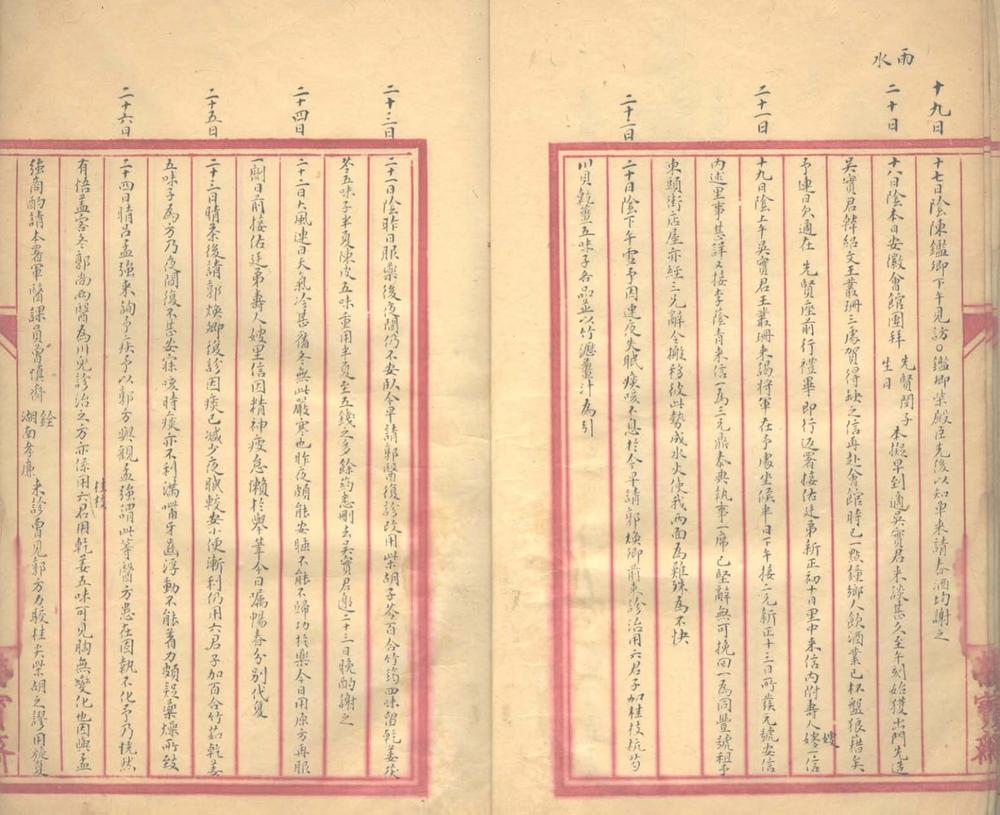 雨水
十九日
十七日陰陳鑑卿下午見訪○鑑卿葉殿臣先後以知單來請春酒均謝之
二十日
十八日陰本日安徽會館團拜 先賢閔子生日 本擬早到適吳實君來談甚久至午刻始獲出門先造
吳實君韓紹文王叢珊三處賀得缺之信再赴會館時已一點鐘鄉人飲酒業已杯盤狼藉矣
予連日欠適在 先賢座前行禮畢即行返署接佑廷弟新正初十日里中來信內附壽人嫂一信
二十一日
十九日陰上午吳實君王叢珊來謁將軍在予處坐候半日下午接二兄新正十三日所發元號安信
內述里事甚詳又接李蔭青來信一為三兄鼎泰典執事一席已堅辭無可挽回一為同豐號租予
東頭街店屋亦經三兄辭令搬移彼此勢成水火使我兩面為難殊為不快
二十二日
二十日陰下午雪予因連夜失眠痰咳不息於今早請郭煥卿前來診治用六君子加桂枝杭芍
川貝乾薑五味子各品並以竹瀝薑汁為引
二十三日
二十一日陰昨日服藥後夜間仍不安臥今早請郭醫復診改用柴胡子芩百合竹筎四味留乾姜茯
苓五味子半夏陳皮五味重用半夏至五錢之多餘药悉刪去吳實君邀二十三日晚酌謝之
二十四日
二十二日大風連日天氣冷甚舊冬無此嚴寒也昨夜頗能安睡不能不歸功於藥今日用原方再服
一劑日前接佑廷弟壽人嫂里信因精神疲怠懶於舉筆今日囑暢春分別代复
二十五日
二十三日晴茶後請郭煥卿復診因痰已減少夜眠較安小便漸利仍用六君子加百合竹茹乾姜
五味子為方乃夜間復不甚安寐咳時痰亦不利滿嘴牙齒浮動不能着力頗疑藥燥所致
二十六日
二十四日晴呂孟強來詢予疾予以郭方與觀孟強謂此等醫方患在固執不化予乃恍然
有悟蓋客冬郭尚西醫為川兒診治之方亦係用六君用桂枝乾姜五味可見胸無變化也因與孟
強商酌請本署軍醫課員曾慎齋 銓湖南孝廉 來診曾見郭方力駁桂尖柴胡之謬用旋复